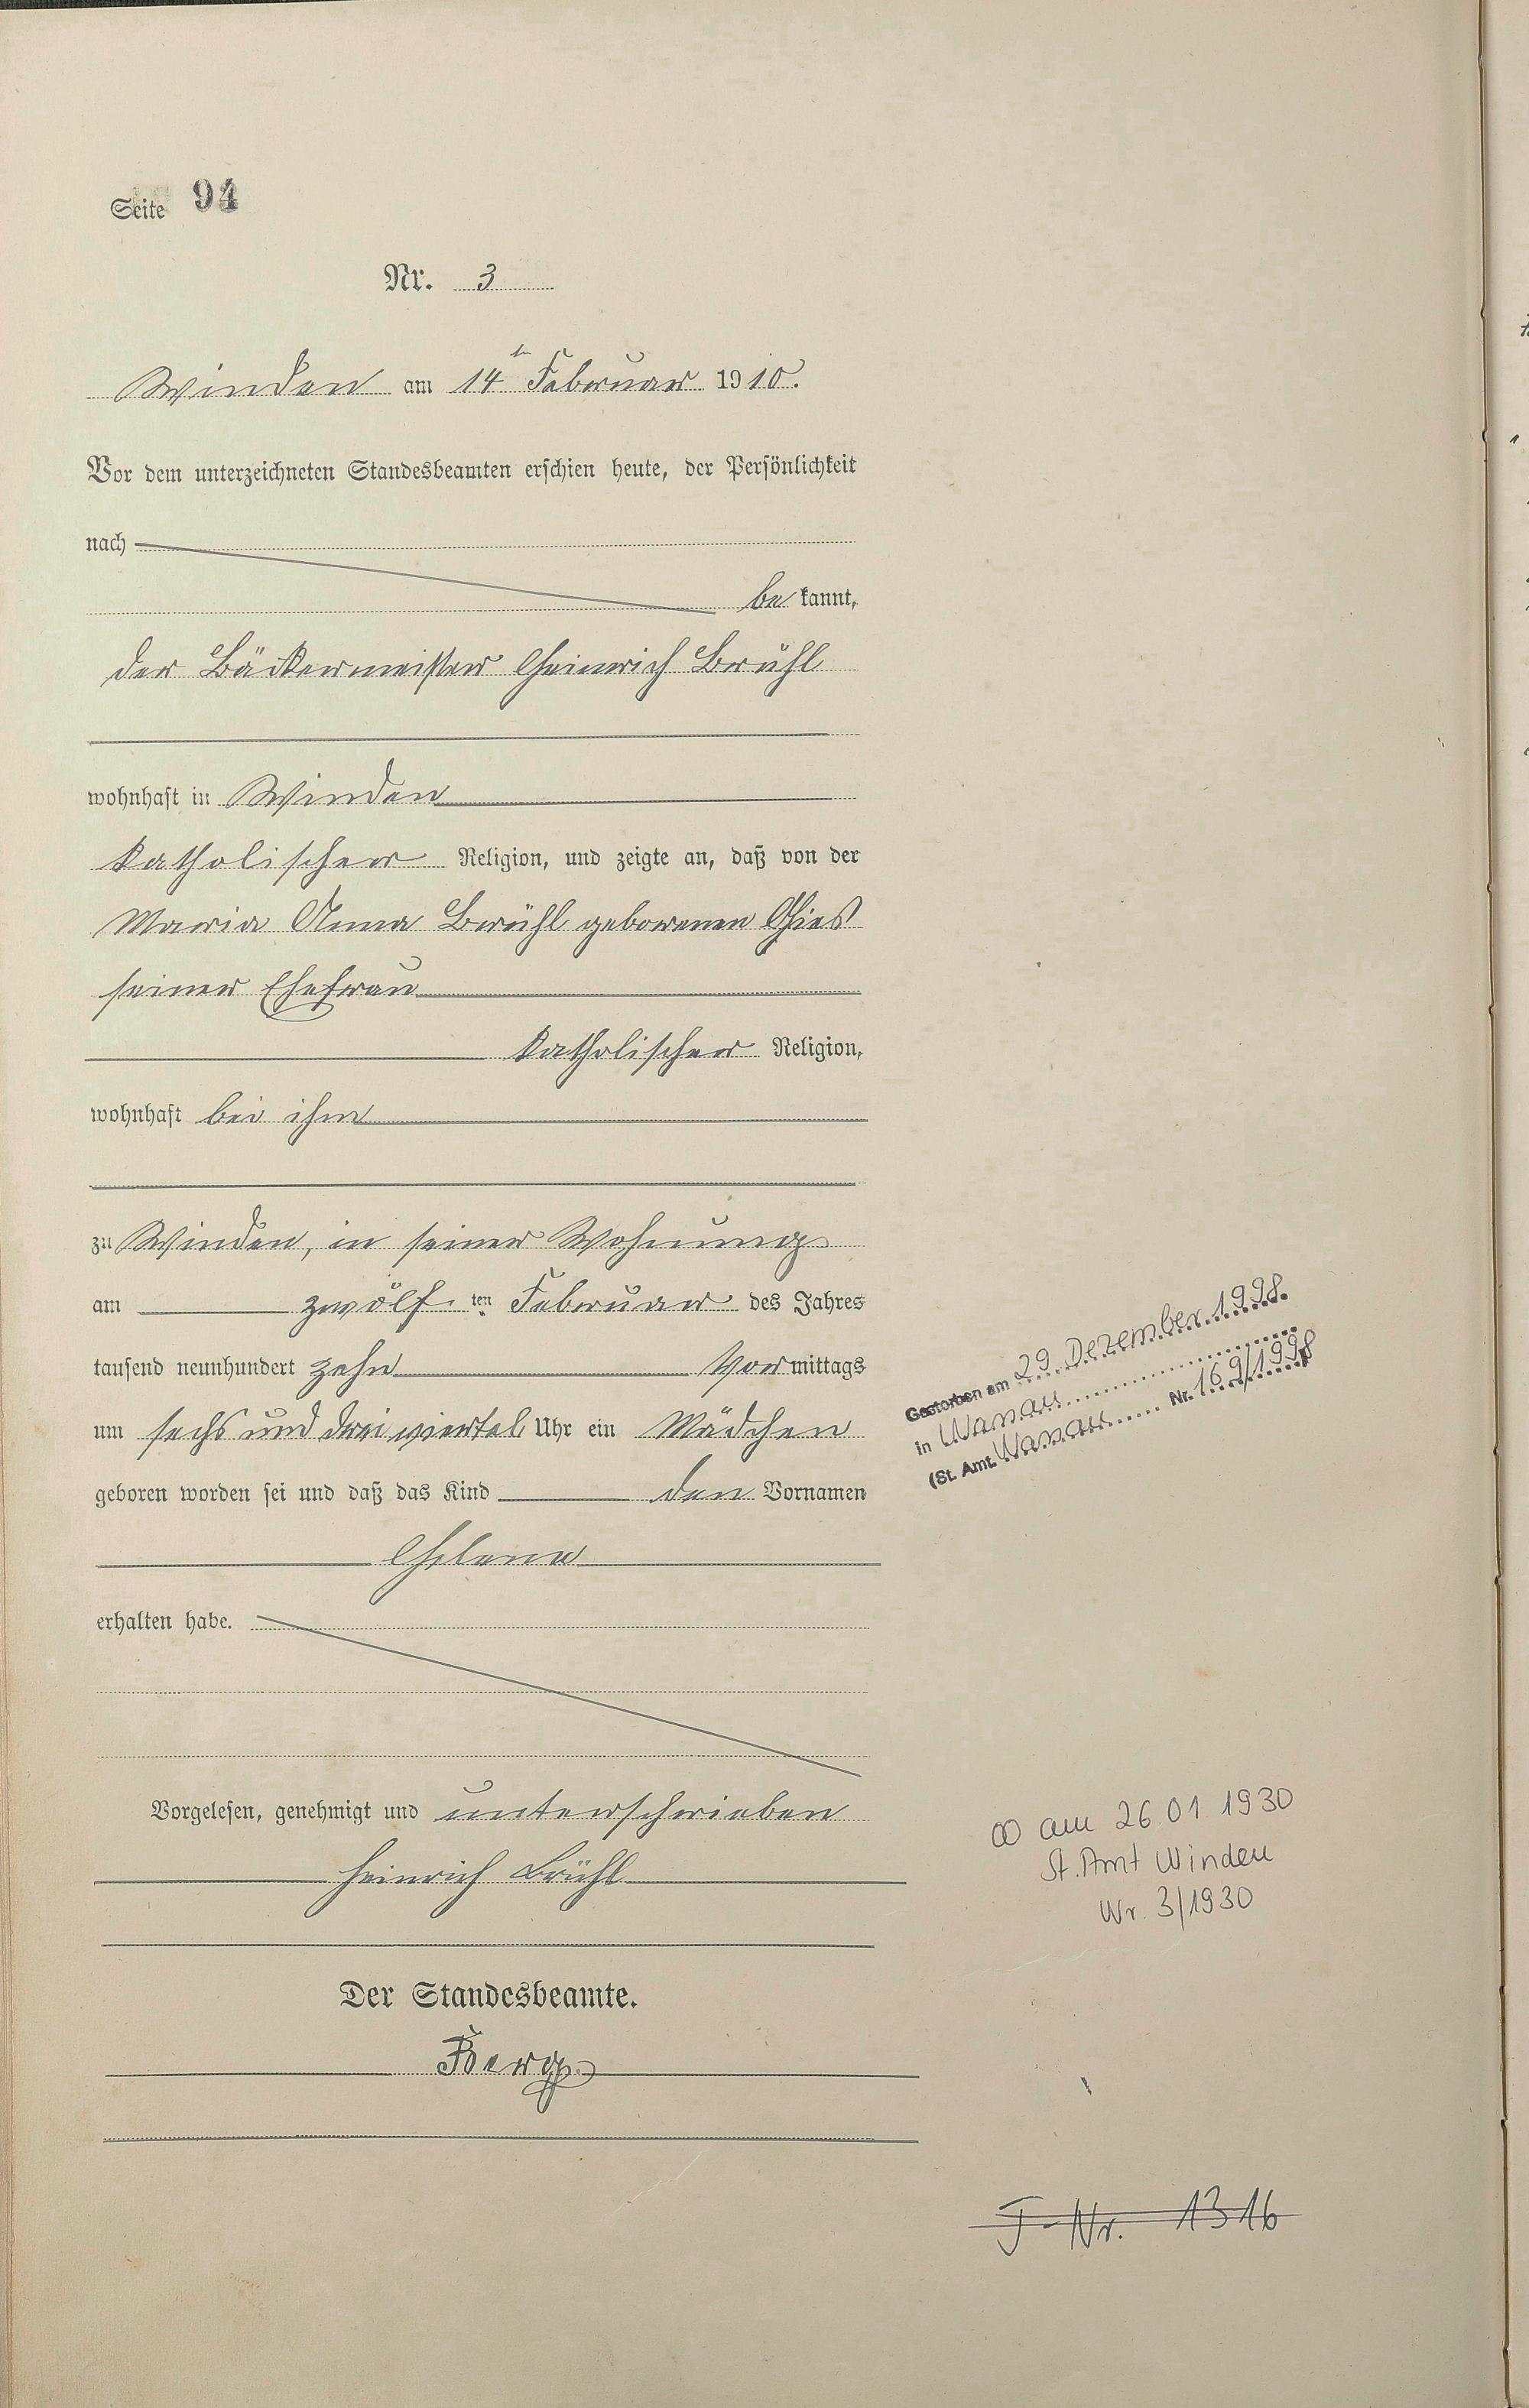 Seite 94
Nr. 3
Winden am 14ten Februar 1910.
Vor dem unterzeichneten Standesbeamten erschien heute, der Persönlichkeit
nach
be kannt,
der Bäckermeister Heinrich Brühl
wohnhaft in Winden
katholischer Religion, und zeigte an, daß von der
Maria Anna Brühl geborenen Gies
seiner Ehefrau
katholischer Religion,
wohnhaft bei ihm
zu Winden, in seiner Wohnung
am zwölf ten Februar des Jahres
tausend neunhundert zehn Vor mittags
um sechs und drei viertel Uhr ein Mädchen
geboren worden sei und daß das Kind den Vornamen
Helena
erhalten habe.
Vorgelesen, genehmigt und unterschrieben
Heinrich Brühl
Der Standesbeamte.
Berg
Gestorben am 29. Dezember 1998.
in Nassau
(St. Amt. Nassau Nr. 169/1998
∞ am 26.01.1930
St. Amt Winden
Nr. 3/1930
J-Nr. 1316